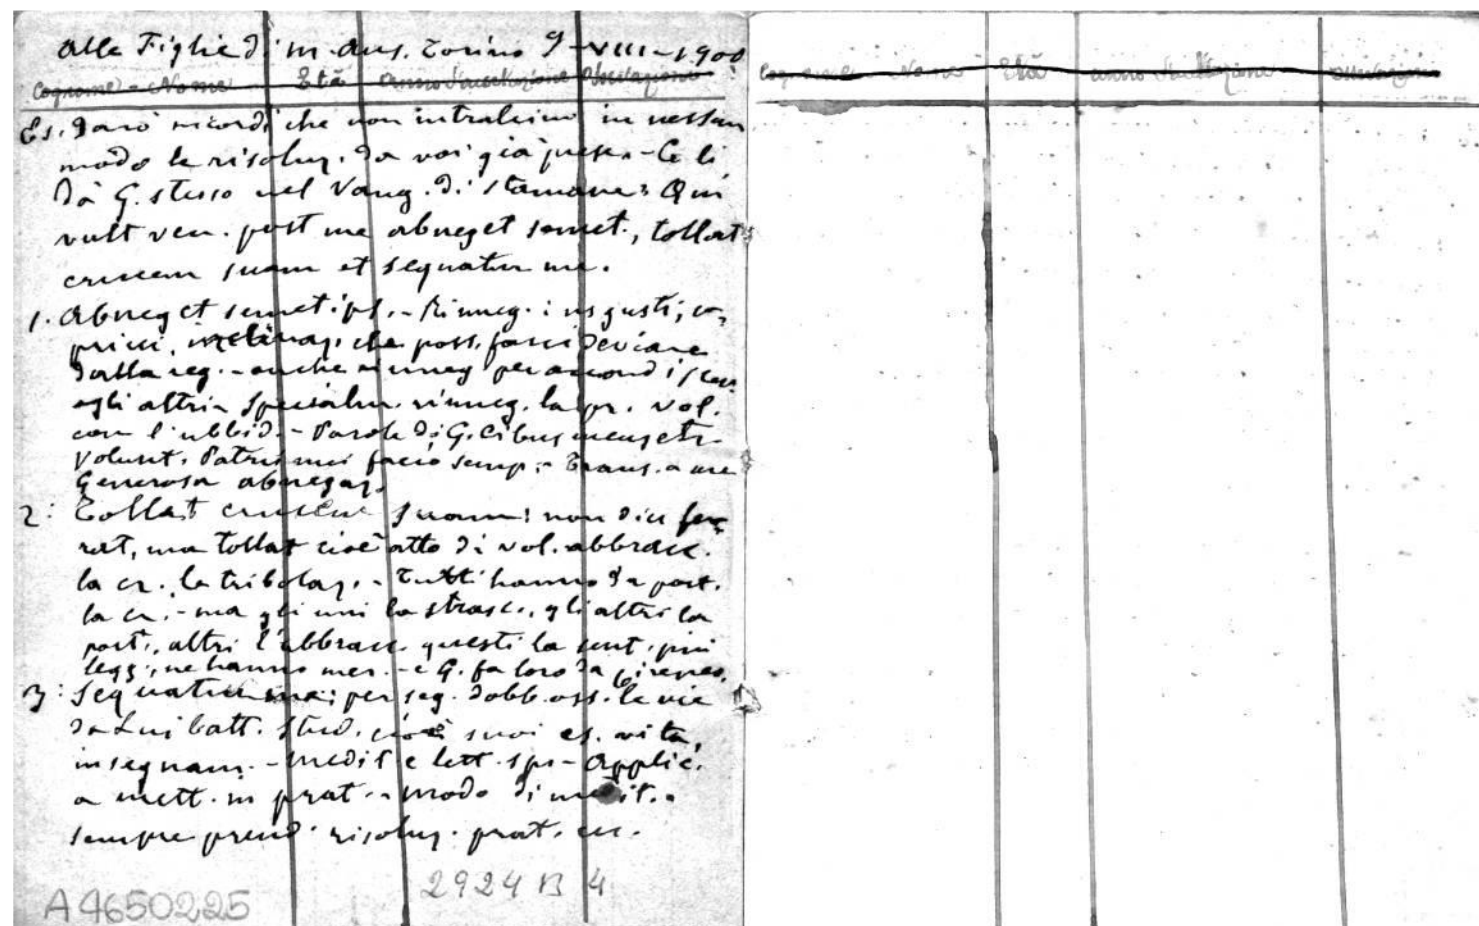 Alle Figlie di M. Aus. Torino 9-VIII-1900
Cognome - Nome Età anno d'accettazione Osservazioni
Es. Darò ricordi che non intralcino in nessun
modo le risoluz. da voi già prese. - Ce li
dà G. stesso nel Vang. di stamane: Qui
vult ven. post me abneget semet., tollat
crucem suam et sequatur me.
1. Abneget semetips. - Rinneg. i ns gusti, ca,
pricci, inclinaz. che poss. farci deviare
dalla reg. - anche rinneg per accond i
agli altri - specialm. rinneg. la pr. vol.
con l'ubbid. - Parole di G. Cibus meus etc
volunt. Patris mei facio semp. - Trans. a me
Generosa abnegaz.
2: Tollat crucem suam: non dice fer,
rat, ma tollat cioè atto di vol. abbracc.
la cr. la tribolaz. - Tutti hanno da port.
la cr. - ma gli uni la strasc., gli altri la
port., altri l'abbracc. questi la sent. più
legg., ne hanno mer. - e G. fa loro da
3: Sequatur me; per seg. dobb. oss. le vie
da Lui batt. Stud. cioè i suoi es. vita,
insegnam. - Medit e lett. spi - Applic.
a mett. in prat. - modo di medit. -
sempre prend. risoluz. prat. ecc.
A4650225
2924 B 4
Cognome Nome Età anno d'accettazione Osservazioni